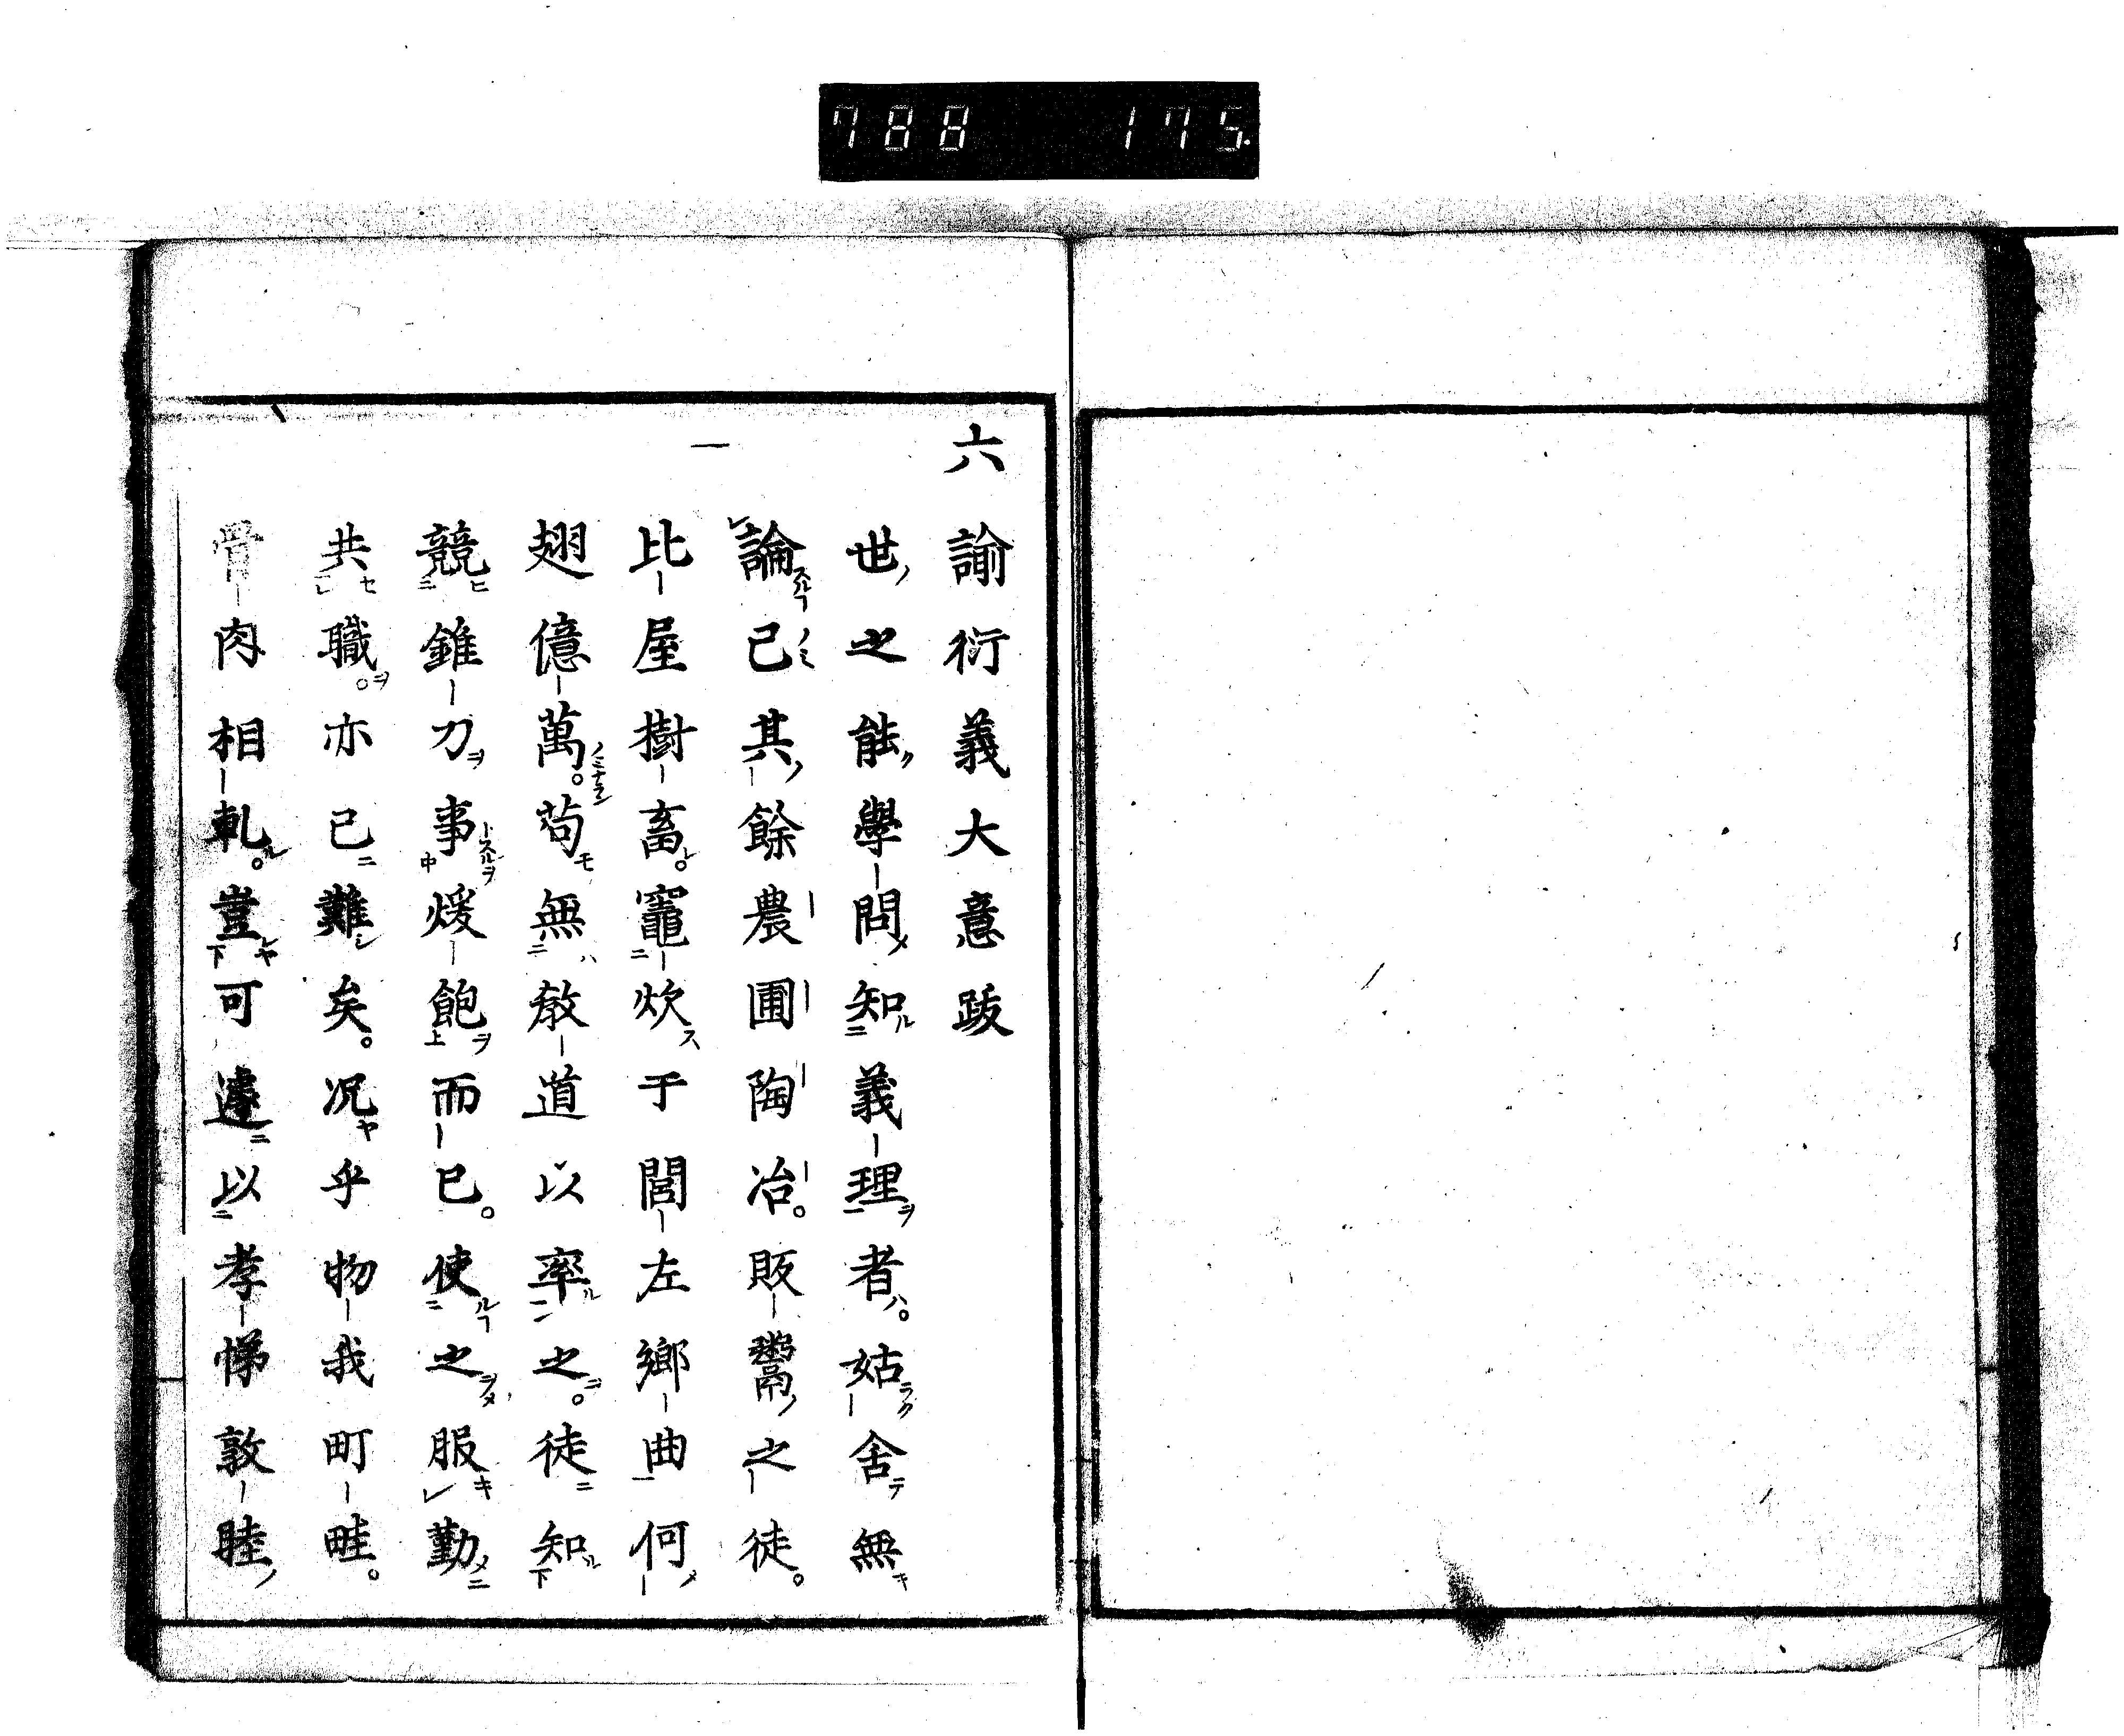 788 175.
六諭衍義大意跋
世之能學問知義理者。姑舍無
論已其餘農圃陶冶。販鬻之徒。
比屋樹畜。竈炊于閭左鄉曲何
翅億萬。苟無教道以率之。徒知
競錐刀事煖飽而已。使之服勤
共職。亦已難矣。況乎物我町畦。
骨肉相軋。豈可遽以孝悌敦睦